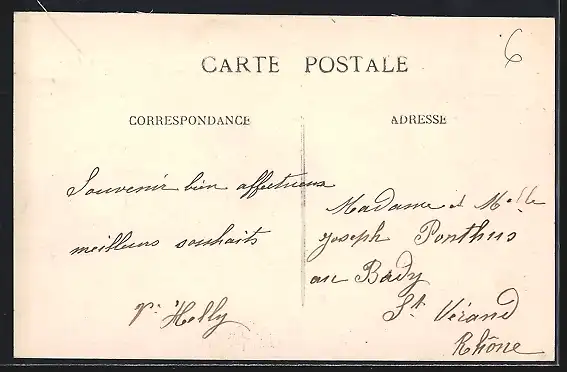 6
CARTE POSTALE
CORRESPONDANCE
ADRESSE
Souvenir bien affectueux
meilleurs souhaits
Helly
Madame et Melle
Joseph Ponthus
au Bady
St Vérand
Rhône